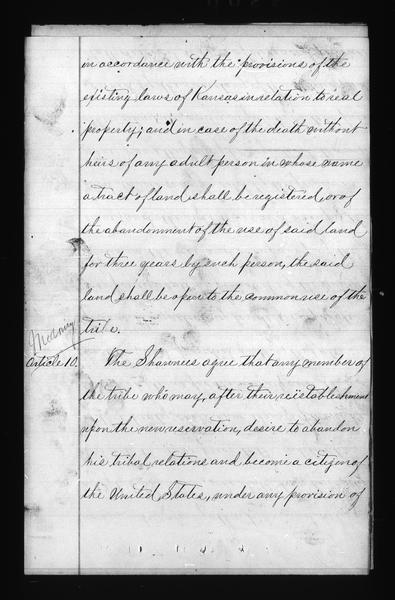 in accordance with the provisions of the
existing laws of Kansas in relation to real
property; and in case of the death without
heirs of any adult person in whose name
a tract of land shall be registered, or of
the abandonment of the use of said land
for three years by such person, the said
land shall be open to the common use of the
tribe.
Article 10. The Shawnees agree that any member of
the tribe who may, after their reëstablishment
upon the new reservation, desire to abandon
his tribal relations and become a citizen of
the United States, under any provision of